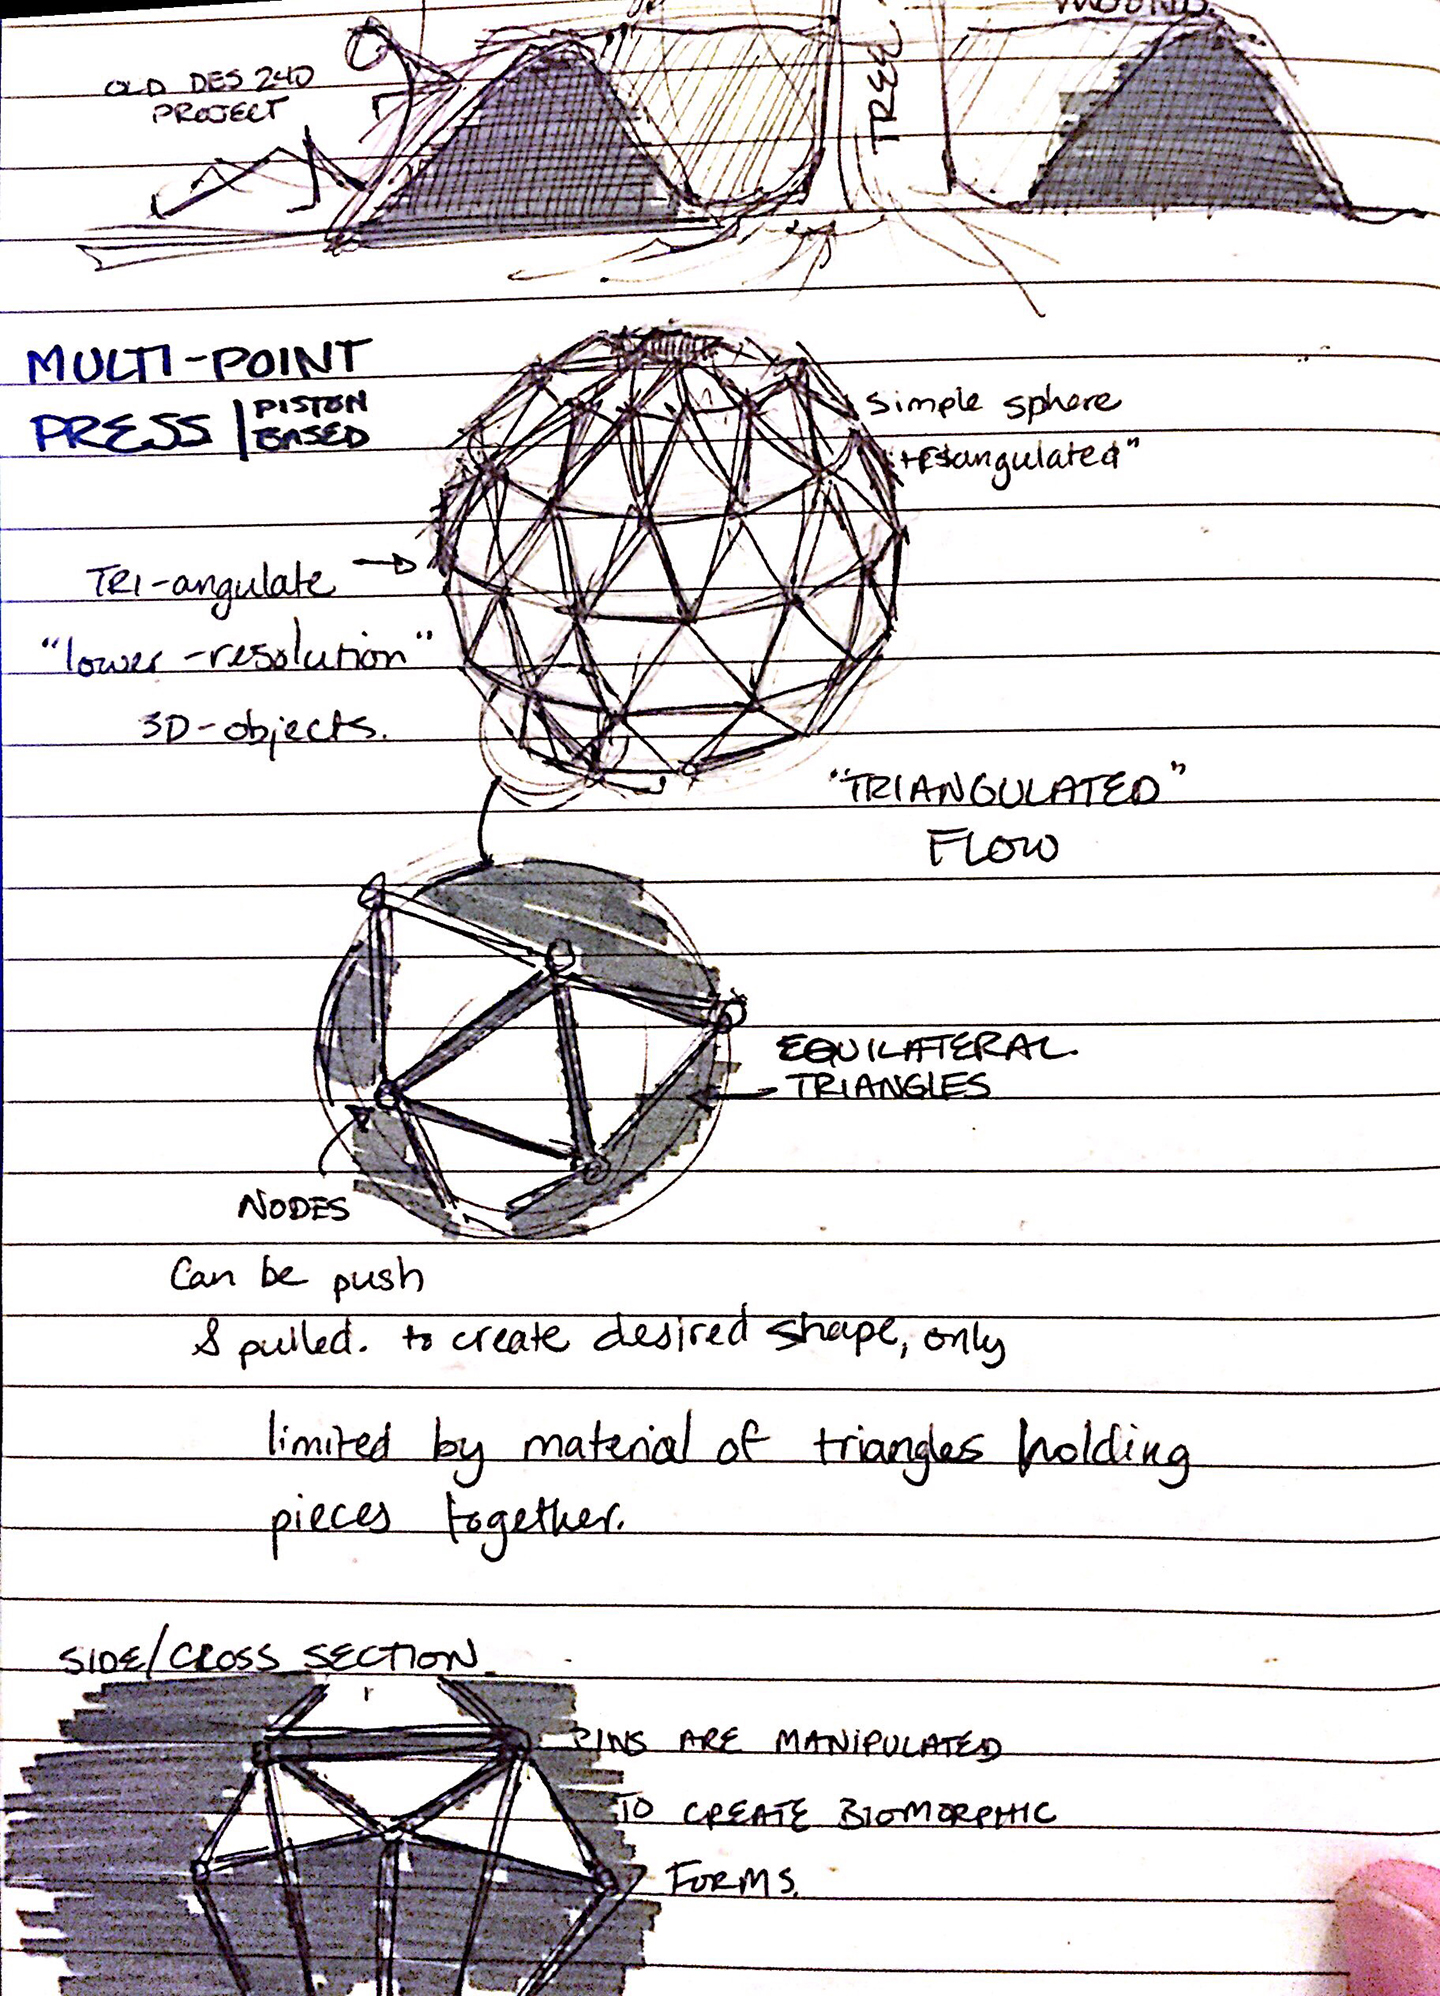 MOUND.
OLD DES 240
PROJECT
TREE
MULTI-POINT
PRESS | PISTON
BASED
simple sphere
triangulated"
TRI-angulate
"lower-resolution"
3D-objects.
"TRIANGULATED"
FLOW
EQUILATERAL
TRIANGLES
NODES
Can be push
& pulled. to create desired shape, only
limited by material of triangles holding
pieces together.
SIDE/CROSS SECTION
PINS ARE MANIPULATED
TO CREATE BIOMORPHIC
FORMS.